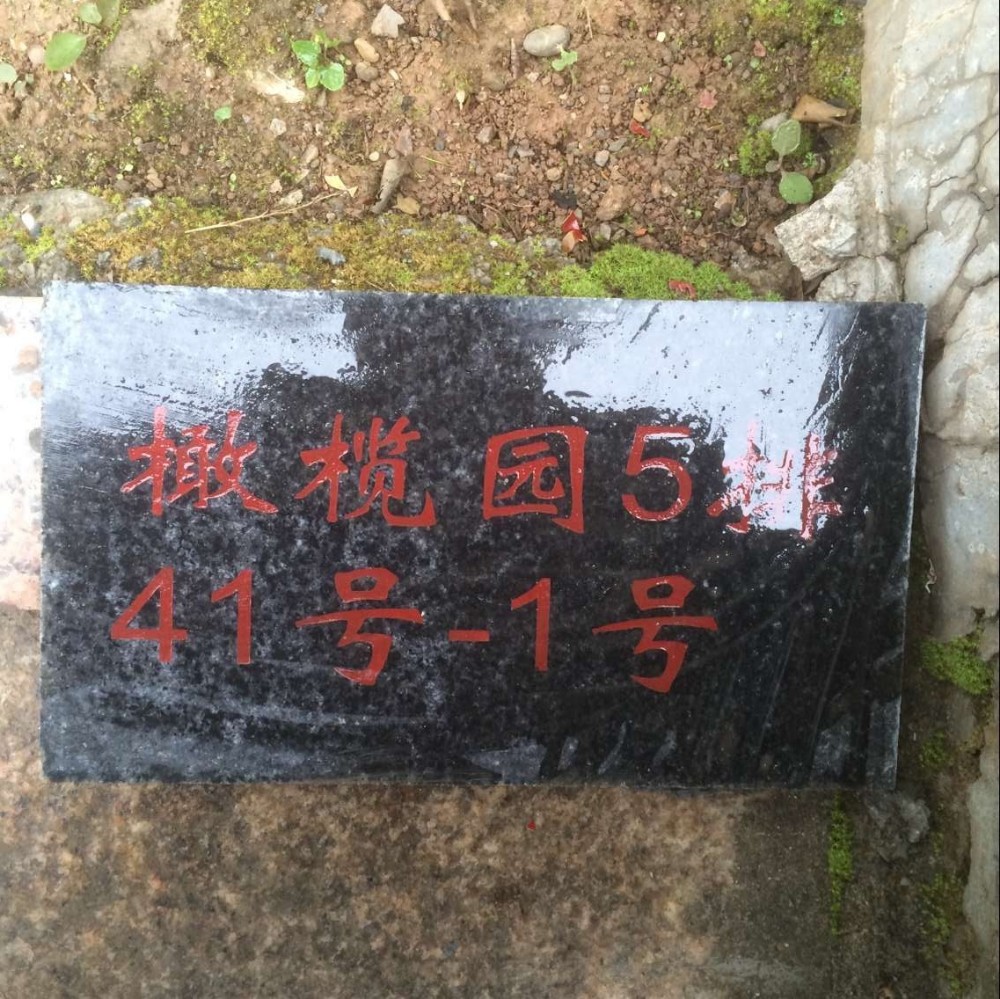 橄榄园5排
41号-1号